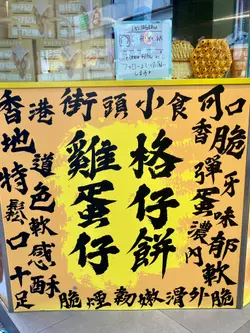 香港街頭小食可口
香脆
彈牙
蛋味
濃郁
內軟
格仔餅
雞蛋仔
地道
特色
鬆軟
口感
十足
酥脆煙韌嫩滑外脆